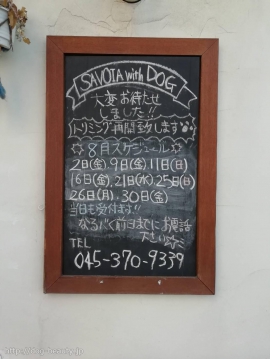 SAVOIA with DOG
大変お待たせ
しました!!
トリミング再開致します
☆8月スケジュール☆
2日(金).9日(金).11日(日)
16日(金).21日(水).25日(日)
26日(月).30日(金)
当日も受付ます!!
なるべく前日までにお電話
下さい
TEL
045-370-9339